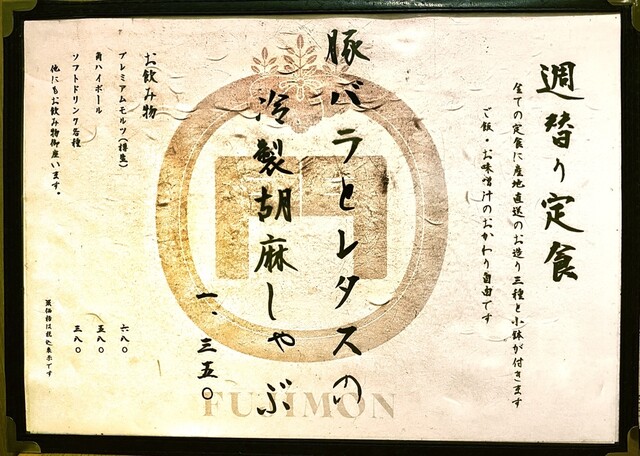 週替り定食
全ての定食に産地直送のお造り三種と小鉢が付きます
ご飯・お味噌汁のおかわり自由です
豚バラとレタスの
冷製胡麻しゃぶ
一、三五〇
お飲み物
プレミアムモルツ(樽生) 六八〇
角ハイボール 五八〇
ソフトドリンク各種 三八〇
他にもお飲み物御座います。
※価格は税込表示です
FUJIMON